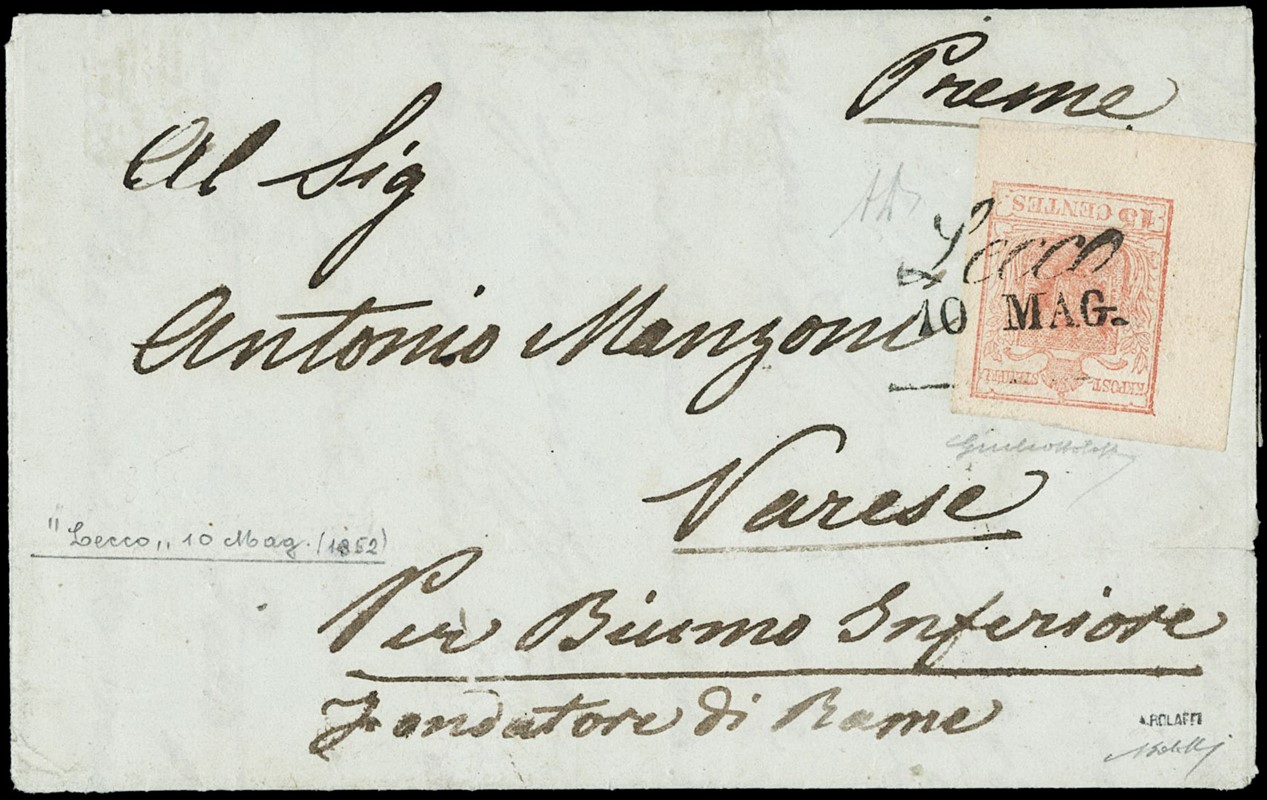 Preme
Al Sig
15 CENTES
Lecco
10 MAG.
Antonio Manzoni
KR POST-STEMPEL
Varese
"Lecco,, 10 Mag. (1852)
Per Biumo Inferiore
Fondatore di Rame
A.BOLAFFI